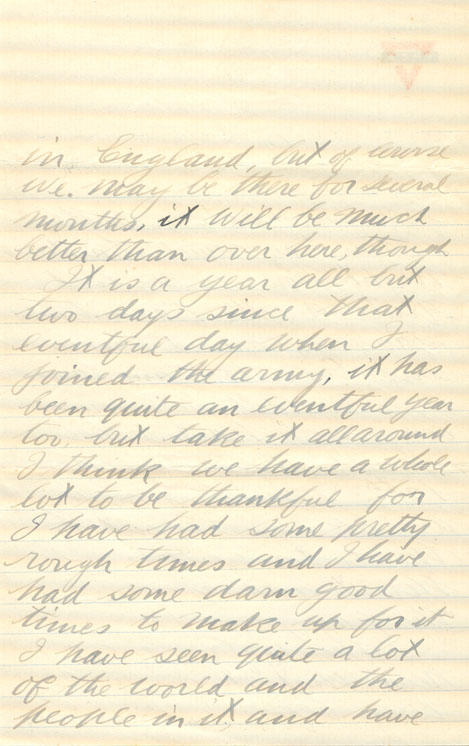 in England, but of course
we. may be there for several
months, it will be much
better than over here, though
It is a year all but
two days since that
eventful day when I
joined the army, it has
been quite an eventful year
too, but take it all around
I think we have a whole
lot to be thankful for
I have had some pretty
rough times and I have
had some darn good
times to make up for it
I have seen quite a lot
of the world and the
people in it, and have